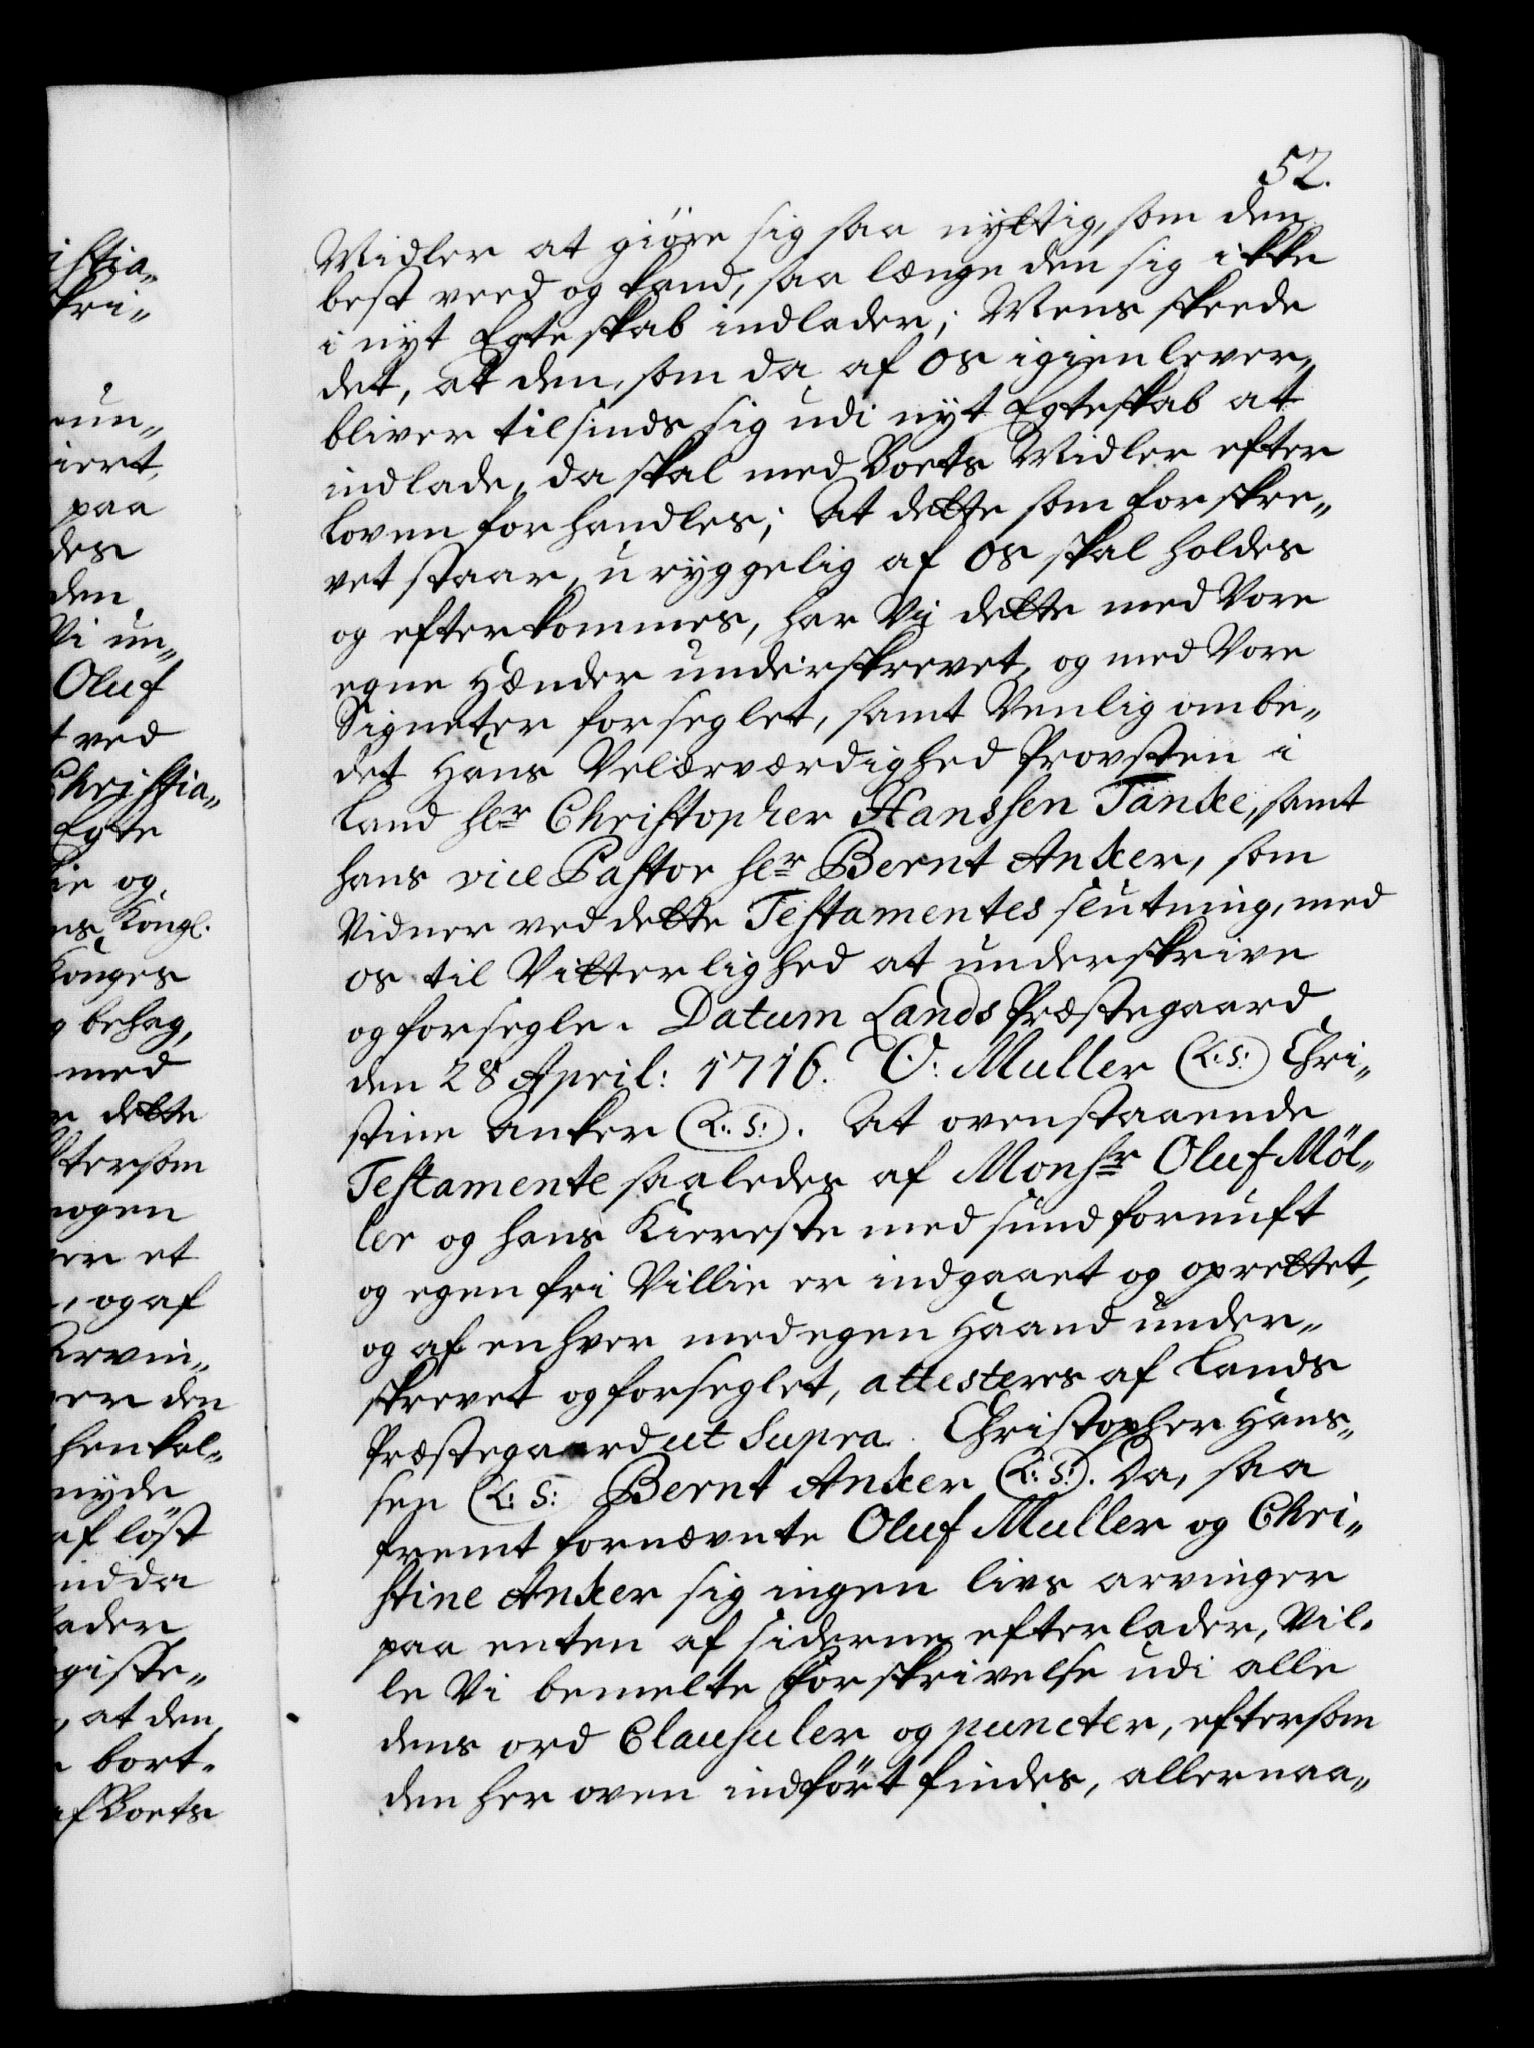 istia„
skri„
eun„
iert,
paa
des
den
Vi un„
Oluf
t ved
Christia„
Egte
ie og
ns Kongl.
Konges
g behag,
med
er dette
ftersom
nogen
er et
, og af
Arvin„
er den
henkal„
nyde
af löst
ud da
lader
giste„
, at den
bort„
af Boets
52.
Midler at giöre sig saa nÿttig, som den
best veed og kand, saa længe den sig ikke
i nÿt Egteskab indlader; Mens skeede
det, at den, som da af os igien lever,
bliver tilsinds sig udi nÿt Egteskab at
indlade, da skal med Boets Midler efter
loven forhandles; At dette som forskre„
vet staar, urÿggelig af os skal holdes
og efterkommes, har Vij dette med Vore
egne Hænder underskrevet, og med Vore
Signeter forseglet, samt Venlig ombe„
det Hans Velærværdighed Provsten i
Land Her Christopher Hanssen Tanke, samt
hans vice Pastor her Bernt Anker, som
Vidner ved dette Testamentes slutning, med
os til Vitterlighed at underskrive
og forsegle. Datum Lands Præstegaard
den 28 April: 1716. O: Muller (L: S:) Chri„
stine Anker (L: S:). At ovenstaaende
Testamente saaledes af Monsr Oluf Möl„
ler og hans Kiereste med sund fornuft
og egen fri Villie er indgaaet og oprettet,
og af enhver med egen Haand under„
skrevet og forseglet, attesteres af Lands
Præstegaard ut Supra. Christopher Hans„
sen (L: S: Bernt Anker (L: S:). Da, saa
fremt fornævnte Oluf Muller og Chri„
stine Anker sig ingen livs arvinger
paa enten af siderne efterlader, Vil„
le Vi bemelte Forskrivelse udi alle
dens ord Clausuler og puncter, eftersom
den her oven indfört findes, allernaa„